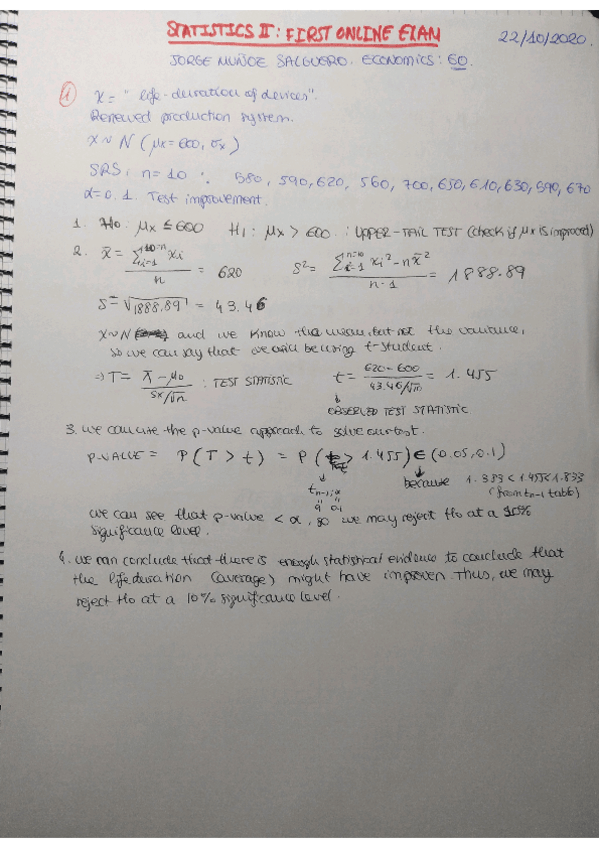 STATISTICS II: FIRST ONLINE EXAM
22/10/2020.
JORGE MUÑOZ SALGUERO. ECONOMICS: 60.
1 X = "life-duration of devices".
Renewed production system.
X ~ N (μx = 600, σx)
SRS, n = 10 : 580, 590, 620, 560, 700, 650, 610, 630, 590, 670
α = 0.1. Test improvement.
1. H0: μx ≤ 600 H1: μx > 600 : UPPER-TAIL TEST (check if μx is improved)
2. x̄ = Σ xi / n = 620 s² = Σ xi² - n x̄² / n-1 = 1888.89
s = √1888.89 = 43.46
X ~ N and we know the mean, but not the variance,
so we can say that we will be using t-student.
⇒ T = x̄ - μ0 / sx/√n : TEST STATISTIC t = 620-600 / 43.46/√10 = 1.455
OBSERVED TEST STATISTIC
3. We calculate the p-value approach to solve our test.
P-VALUE = P (T > t) = P ( > 1.455) ∈ (0.05, 0.1)
tn-1; α
9 0,1
because 1.383 < 1.455 < 1.833
(from tn-1 table)
We can see that p-value < α, so we may reject H0 at a 10%
significance level.
4. We can conclude that there is enough statistical evidence to conclude that
the life duration (average) might have improven. Thus, we may
reject H0 at a 10% significance level.